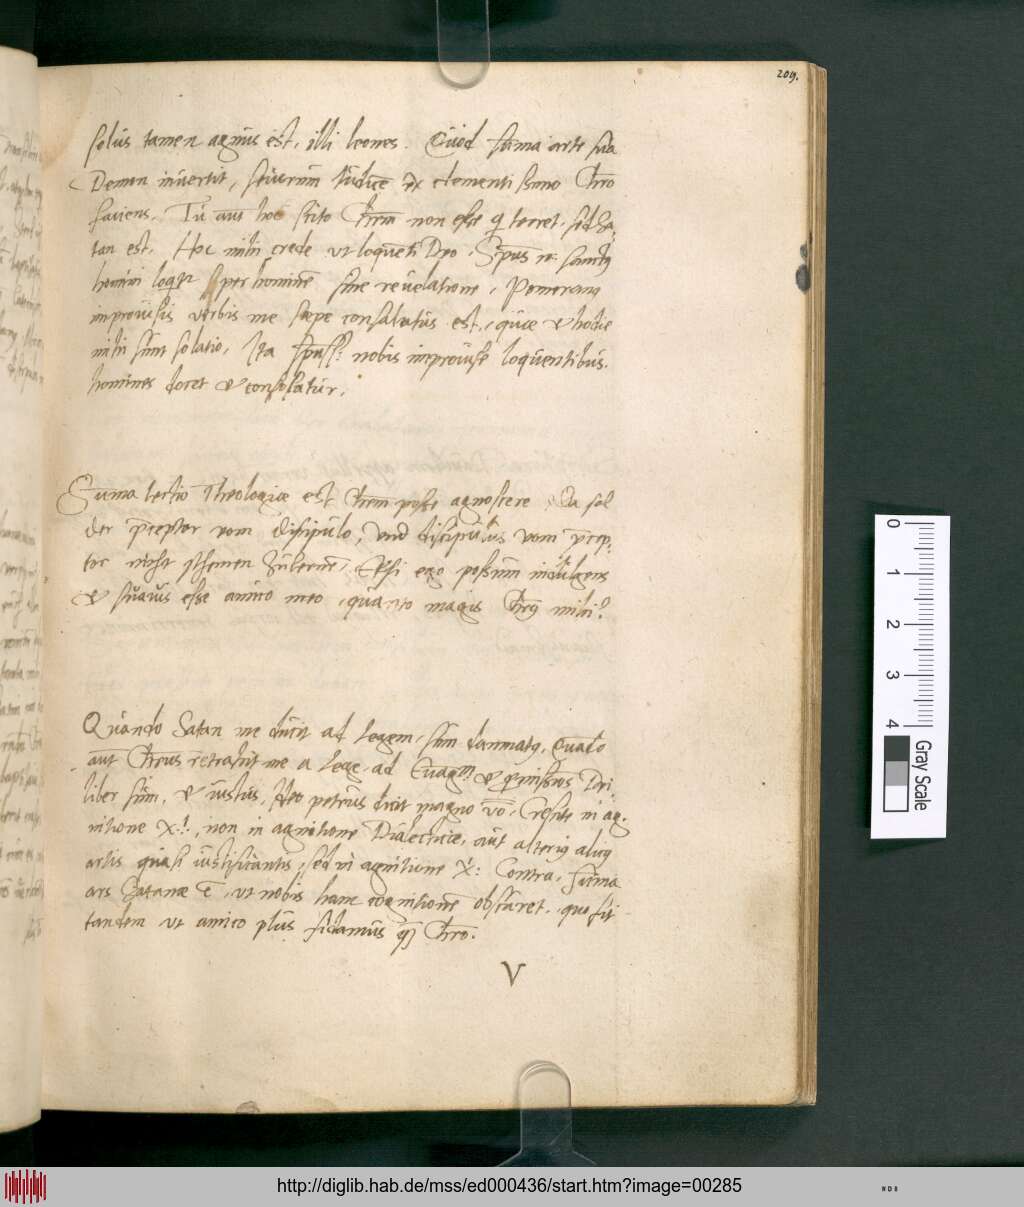 209.
solus tamen agnus est, illi leones. Quod suma arte sua
Demon invertit, seuerum Iudicē ex clementissimo Chr̄o
faciens. Tu aūt hoc scito Chr̄m non esse q terret, sed Sa,
tan est. Hoc mihi crede ut loquenti Deo. Sp̄us n. sanctus
homini loqr per hominē sine reuelatione, Pomeranus
improuisis verbis me sæpe consolatus est, quæ & hodie
mihi sunt solatio, Ita sp̄uss: nobis improuise loquentibus.
homines docet & consolatur.
Suma lectio Theologiæ est Chr̄m posse agnoscere, Da sol
der p̄ceptor vom discipulo, vnd discipulus vom p̄cep,
tor nicht schemen zu lernē, Etsi ego possum indulgens
& suauis esse amico meo, quanto magis Chr̄us mihi?
Quando Satan me ducit ad legem, sum damnatus, Quādo
aūt Chr̄us retrahit me a lege ad Euāgm & pmissiōes Dei,
liber sum, & iustus, Ideo petrus dicit magno vo, Crescite in ag,
nitione X:, non in agnitione Dialecticæ, aut alterius alicuius
artis quasi iustificantis, sed in agnitione X: Contra, suma
ars Satanæ ē, ut nobis hanc cognitionē obscuret, quo fit
tandem ut amico plus fidamus q̄ Chr̄o.
V
0
1
2
3
4
Gray Scale
http://diglib.hab.de/mss/ed000436/start.htm?image=00285